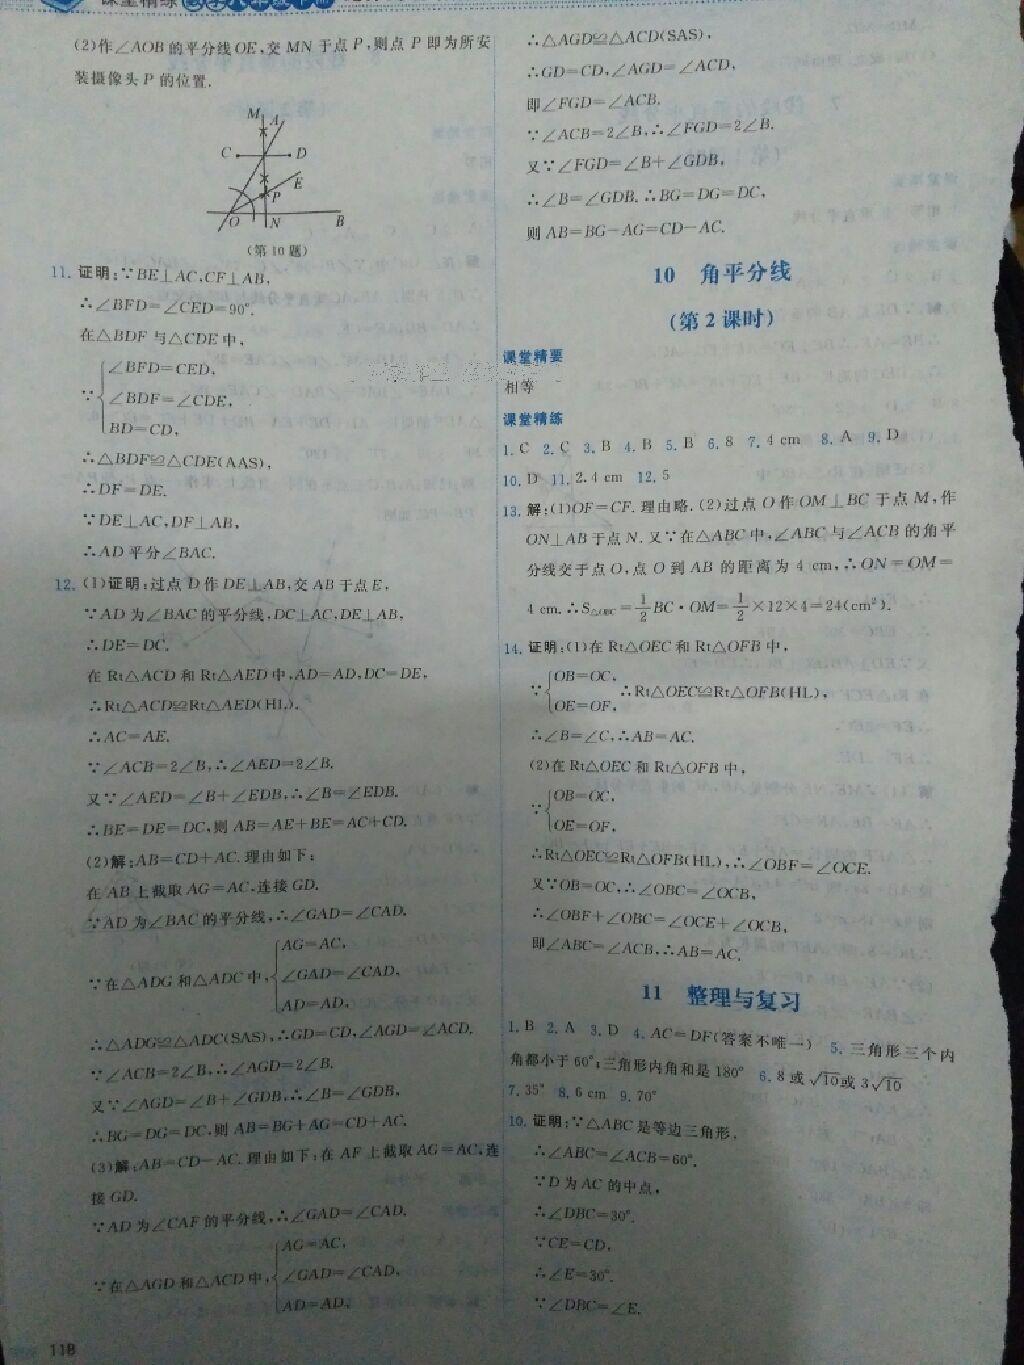 课堂精练 数学八年级下册
(2)作∠AOB的平分线OE,交MN于点P,则点P即为所安
装摄像头P的位置.
M A
C D
E
P
O N B
(第10题)
11. 证明:∵BE⊥AC,CF⊥AB,
∴∠BFD=∠CED=90°.
在△BDF与△CDE中,
∠BFD=CED,
∵ ∠BDF=∠CDE,
BD=CD,
∴△BDF≌△CDE(AAS),
∴DF=DE.
∵DE⊥AC,DF⊥AB,
∴AD平分∠BAC.
12. (1)证明:过点D作DE⊥AB,交AB于点E,
∵AD为∠BAC的平分线,DC⊥AC,DE⊥AB,
∴DE=DC.
在Rt△ACD和Rt△AED中,AD=AD,DC=DE,
∴Rt△ACD≌Rt△AED(HL).
∴AC=AE.
∵∠ACB=2∠B,∴∠AED=2∠B.
又∵∠AED=∠B+∠EDB,∴∠B=∠EDB.
∴BE=DE=DC,则AB=AE+BE=AC+CD.
(2)解:AB=CD+AC.理由如下:
在AB上截取AG=AC,连接GD.
∵AD为∠BAC的平分线,∴∠GAD=∠CAD.
AG=AC,
∵在△ADG和△ADC中, ∠GAD=∠CAD,
AD=AD,
∴△ADG≌△ADC(SAS),∴GD=CD,∠AGD=∠ACD.
∵∠ACB=2∠B,∴∠AGD=2∠B.
又∵∠AGD=∠B+∠GDB,∴∠B=∠GDB,
∴BG=DG=DC,则AB=BG+AG=CD+AC.
(3)解:AB=CD-AC.理由如下:在AF上截取AG=AC,连
接GD.
∵AD为∠CAF的平分线,∴∠GAD=∠CAD.
AG=AC,
∵在△AGD和△ACD中, ∠GAD=∠CAD,
AD=AD,
118
∴△AGD≌△ACD(SAS),
∴GD=CD,∠AGD=∠ACD,
即∠FGD=∠ACB.
∵∠ACB=2∠B,∴∠FGD=2∠B.
又∵∠FGD=∠B+∠GDB,
∴∠B=∠GDB.∴BG=DG=DC,
则AB=BG-AG=CD-AC.
10 角平分线
(第2课时)
课堂精要
相等
课堂精练
1. C 2. C 3. B 4. B 5. B 6. 8 7. 4 cm 8. A 9. D
10. D 11. 2.4 cm 12. 5
13. 解:(1)OF=CF.理由略.(2)过点O作OM⊥BC于点M,作
ON⊥AB于点N.又∵在△ABC中,∠ABC与∠ACB的角平
分线交于点O,点O到AB的距离为4 cm,∴ON=OM=
4 cm.∴S△OBC=1/2BC·OM=1/2×12×4=24(cm²).
14. 证明:(1)在Rt△OEC和Rt△OFB中,
∵ OB=OC, ∴Rt△OEC≌Rt△OFB(HL),
OE=OF,
∴∠B=∠C,∴AB=AC.
(2)在Rt△OEC和Rt△OFB中,
∵ OB=OC,
OE=OF,
∴Rt△OEC≌Rt△OFB(HL),∴∠OBF=∠OCE.
又∵OB=OC,∴∠OBC=∠OCB,
∴∠OBF+∠OBC=∠OCE+∠OCB,
即∠ABC=∠ACB,∴AB=AC.
11 整理与复习
1. B 2. A 3. D 4. AC=DF(答案不唯一) 5. 三角形三个内
角都小于60°;三角形内角和是180° 6. 8或√10或3√10
7. 35° 8. 6 cm 9. 70°
10. 证明:∵△ABC是等边三角形,
∴∠ABC=∠ACB=60°.
∵D为AC的中点,
∴∠DBC=30°.
∵CE=CD,
∴∠E=30°.
∵∠DBC=∠E.